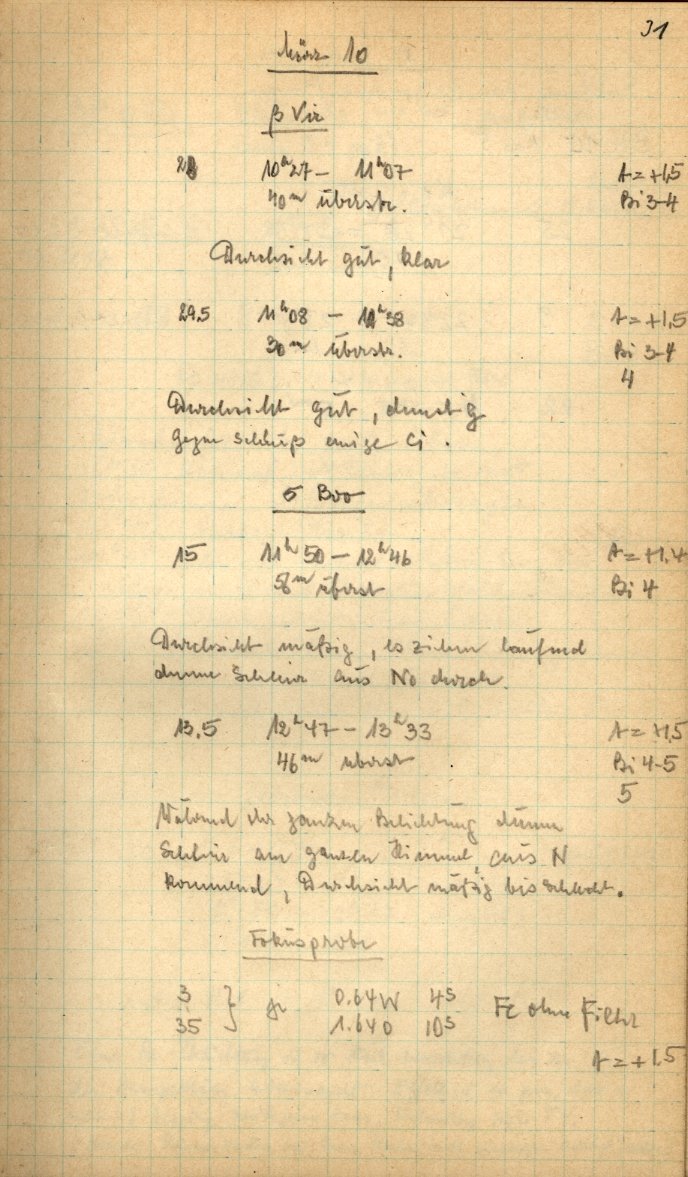 31
März 10
β Vir
10ʰ27 – 11ʰ07 A = +1,5
40ᵐ überstr. Bi 3-4
Durchsicht gut, klar
29.5 11ʰ08 – 11ʰ38 A = +1,5
30ᵐ überstr. Bi 3-4
4
Durchsicht gut, dunstig
gegen Schluß einige Ci.
5 Boo
15 11ʰ50 – 12ʰ46 A = +1.4
56ᵐ überst Bi 4
Durchsicht mäßig, es ziehen laufend
dünne Schleier aus No durch.
13,5 12ʰ47 – 13ʰ33 A = +1,5
46ᵐ überst Bi 4-5
5
Während der ganzen Belichtung dünne
Schleier am ganzen Himmel, aus N
kommend, Durchsicht mäßig bis schlecht.
Fokusprobe
3 } 0.64W 4ˢ Fc ohne Filter
35 1.640 10ˢ
A = +1.5